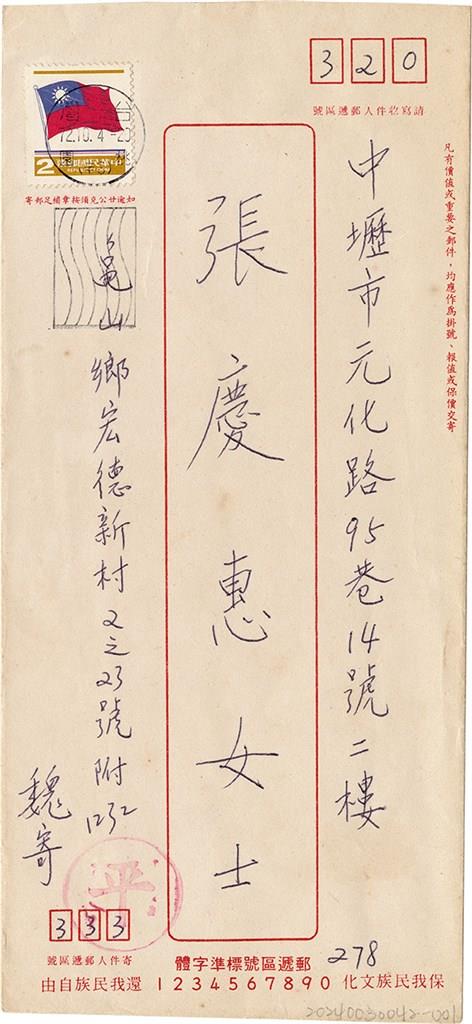 320
請寫收件人郵遞區號
凡有價值或重要之郵件，均應作為掛號、報值或保價交寄
中壢市元化路95巷14號二樓
張慶惠女士
中華民國郵票
2
台
12.10.4
如逾廿公克須按章補足郵寄
龜山鄉宏德新村2之23號附1232
魏寄
平
333
寄件人郵遞區號
郵遞區號標準字體
1234567890
278
保我民族文化
還我民族自由
20240030042-001